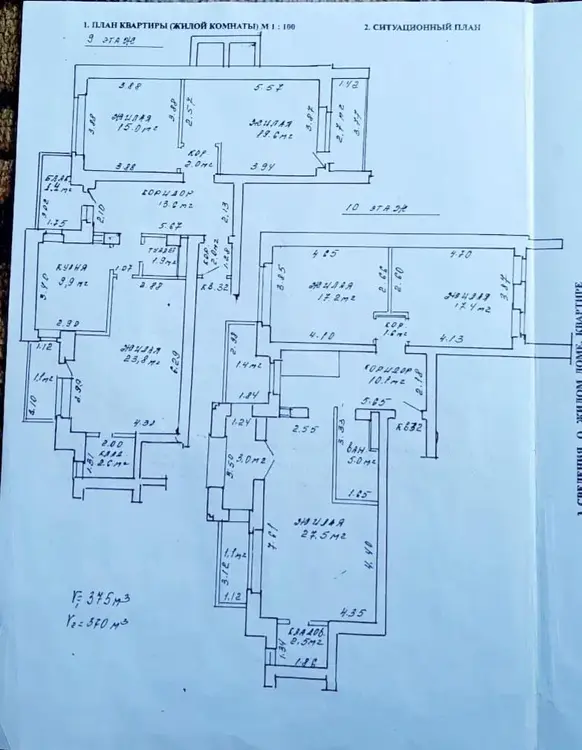 1. ПЛАН КВАРТИРЫ (ЖИЛОЙ КОМНАТЫ) М 1 : 100
2. СИТУАЦИОННЫЙ ПЛАН
9 ЭТАЖ
3.88
5.57
1.42
3.88
2.57
3.87
2.7 м2
3.77
ЖИЛАЯ
15.0 м2
ЖИЛАЯ
19.6 м2
3.88
КОР
2.0 м2
3.88
3.94
БАЛК
1.4 м2
КОРИДОР
13.6 м2
3.02
2.10
2.13
1.75
5.67
10 ЭТАЖ
ТУАЛЕТ
1.9 м2
КОР
2.0 м2
1.28
КВ.32
КУХНЯ
9.9 м2
1.07
2.88
3.40
2.90
4.65
4.70
3.85
2.66
2.60
3.87
ЖИЛАЯ
17.2 м2
ЖИЛАЯ
17.4 м2
КОР
1.6 м2
4.10
4.13
ЖИЛАЯ
23.8 м2
6.29
1.12
1.1 м2
3.10
4.32
2.00
КЛАД
2.6 м2
1.31
2.98
1.4 м2
1.84
КОРИДОР
10.1 м2
2.18
5.65
КВ32
1.24
2.55
3.33
3.0 м2
3.50
ВАН.
5.0 м2
1.65
ЖИЛАЯ
27.5 м2
7.61
4.40
1.1 м2
3.12
1.12
4.35
КЛАДОВ
2.5 м2
1.34
1.86
V1= 375 м3
V2= 370 м3
3 СВЕДЕНИЯ О ЖИЛОМ ДОМЕ, КВАРТИРЕ